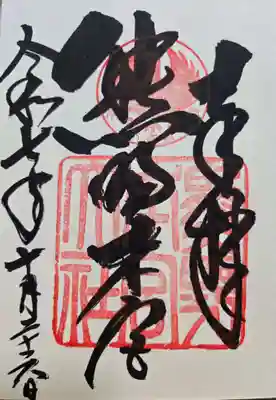 奉拝
熊野本宮
令和七年十月二十六日